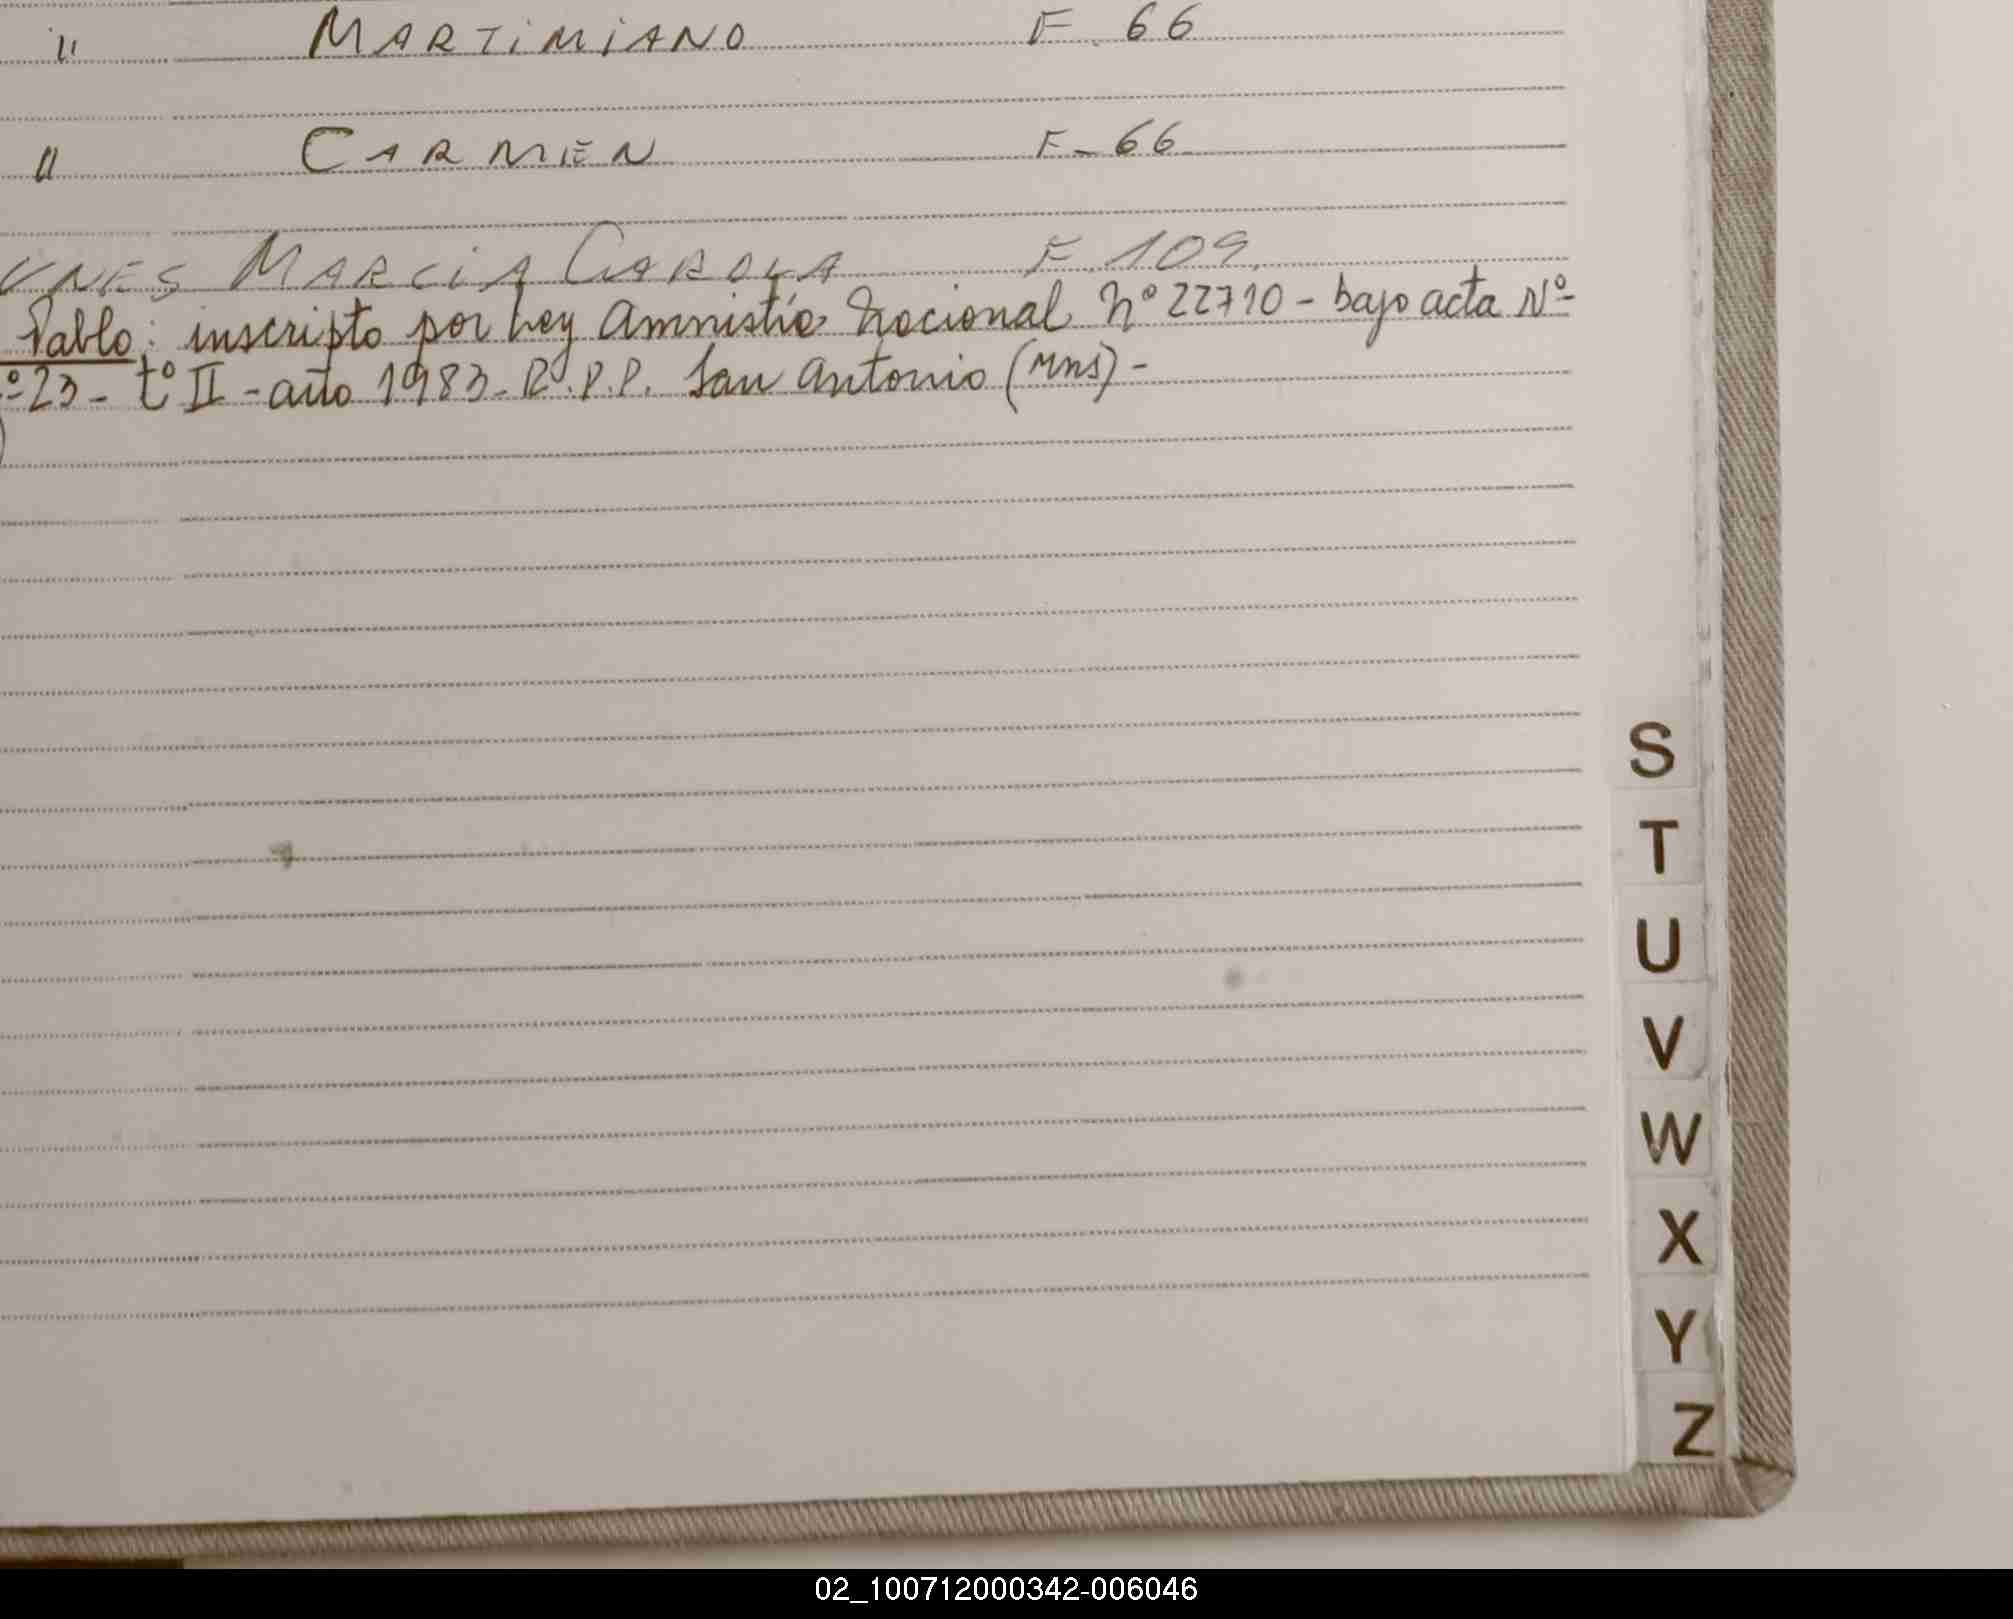 " MARTIMIANO F. 66
" CARMEN F_66
UNES MARCIA CAROLA F 109
Pablo: inscripto por Ley Amnistía Nacional nº 22710 - bajo acta Nº-
º23- tº II - año 1983- R.P.P. San Antonio (Mns) -
S
T
U
V
W
X
Y
Z
02_100712000342-006046